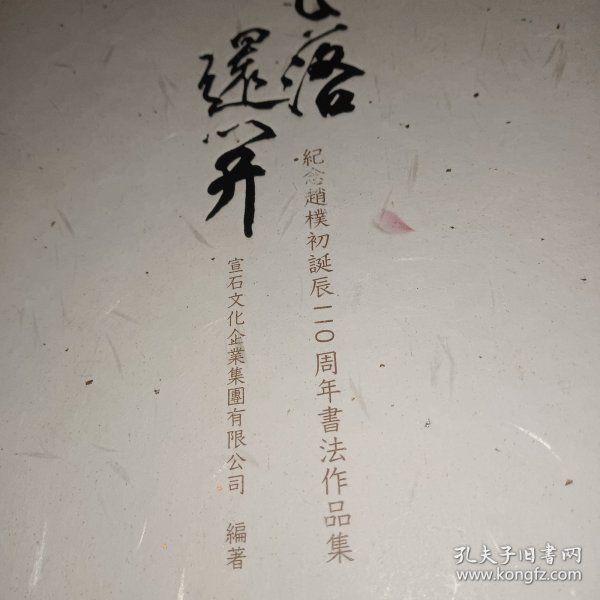 落
還開
紀念趙樸初誕辰一一〇周年書法作品集
宣石文化企業集團有限公司 編著
孔夫子旧书网
www.kongfz.com